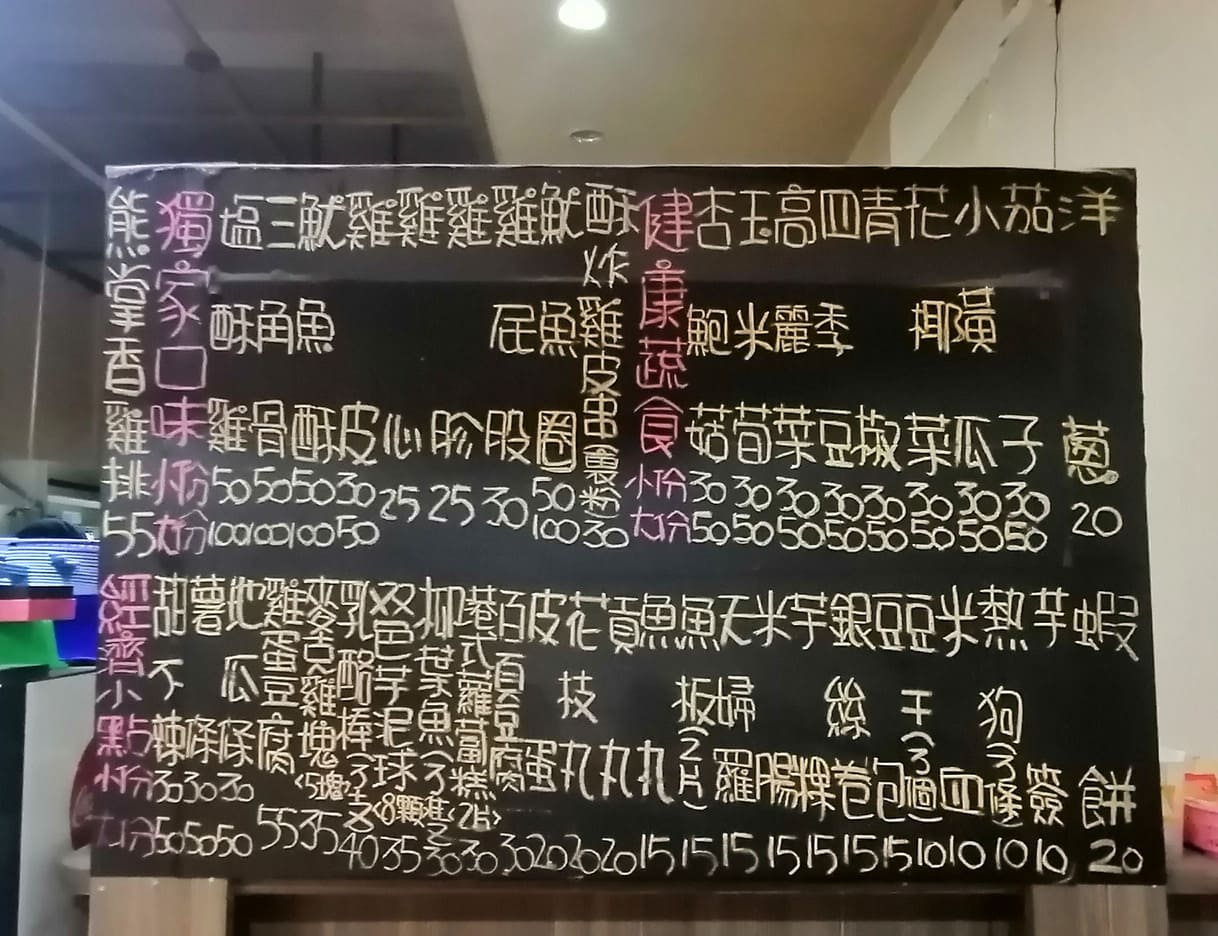 熊掌香雞排 55
獨家口味 小份 大份
塩酥雞 50 100
三角骨 50 100
魷魚酥 50 100
雞皮 30 50
雞心 25
雞胗 25
雞屁股 30
魷魚圈 50 100
酥炸雞皮串裹粉 30
健康蔬食 小份 大份
杏鮑菇 30 50
玉米荀 30 50
高麗菜 30 50
四季豆 30 50
青椒 30 50
花椰菜 30 50
小黃瓜 30 50
茄子 30 50
洋蔥 20
經濟小點 小份 大份
甜不辣 30 50
薯條 30 50
地瓜條 30 50
雞蛋豆腐 55
麥克雞塊<5塊> 35
乳酪棒(3支) 40
双色芋泥球<8顆> 35
柳葉魚(3隻) 30
港式蘿蔔糕<2片> 30
百頁豆腐 30
皮蛋 20
花枝丸 20
貢丸 20
魚丸 15
魚板(2片) 15
天婦羅 15
米腸 15
芋粿 15
銀絲卷 15
豆包 15
豆干(3個) 10
米血 10
熱狗(3條) 10
芋簽 10
蝦餅 20